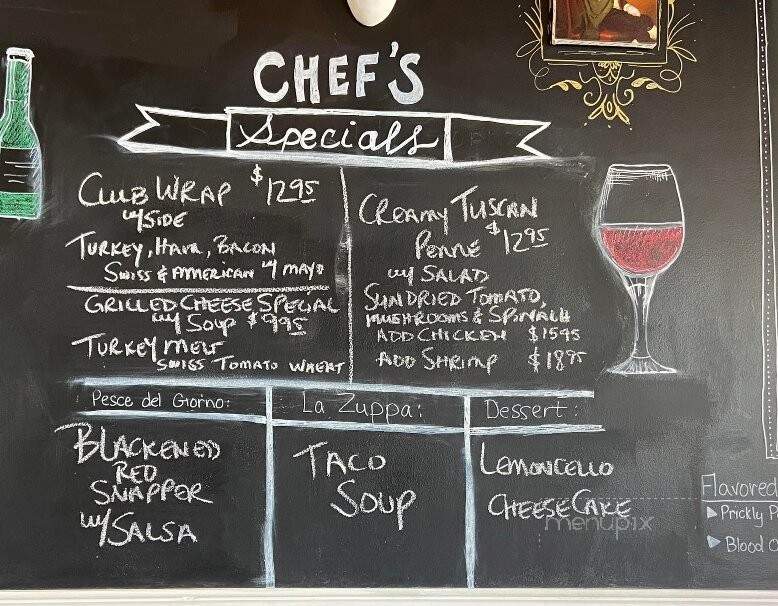 CHEF'S
Specials
CLUB WRAP $1295
w/SIDE
TURKEY, HAM, BACON
SWISS & AMERICAN w/ MAYO
GRILLED CHEESE SPECIAL
w/ SOUP $995
TURKEY MELT
SWISS TOMATO WHEAT
CREAMY TUSCAN
PENNE $1295
w/ SALAD
SUNDRIED TOMATO,
MUSHROOMS & SPINACH
ADD CHICKEN $1595
ADD SHRIMP $1895
Pesce del Giorno:
BLACKENED
RED
SNAPPER
w/SALSA
La Zuppa:
TACO
SOUP
Dessert:
LEMONCELLO
CHEESECAKE
menupix
Flavored
Prickly P
Blood O